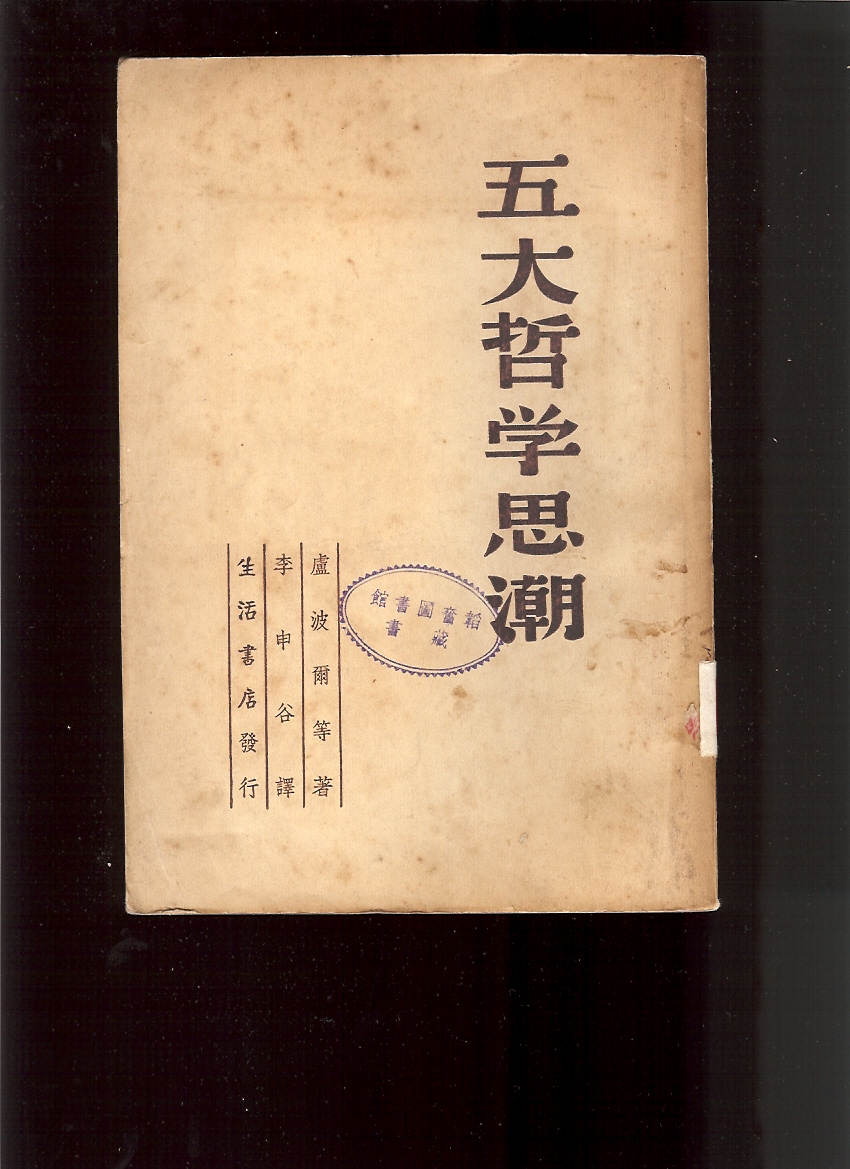 五大哲学思潮
盧波爾等著
李申谷譯
生活書店發行
韜奮圖書館
藏書